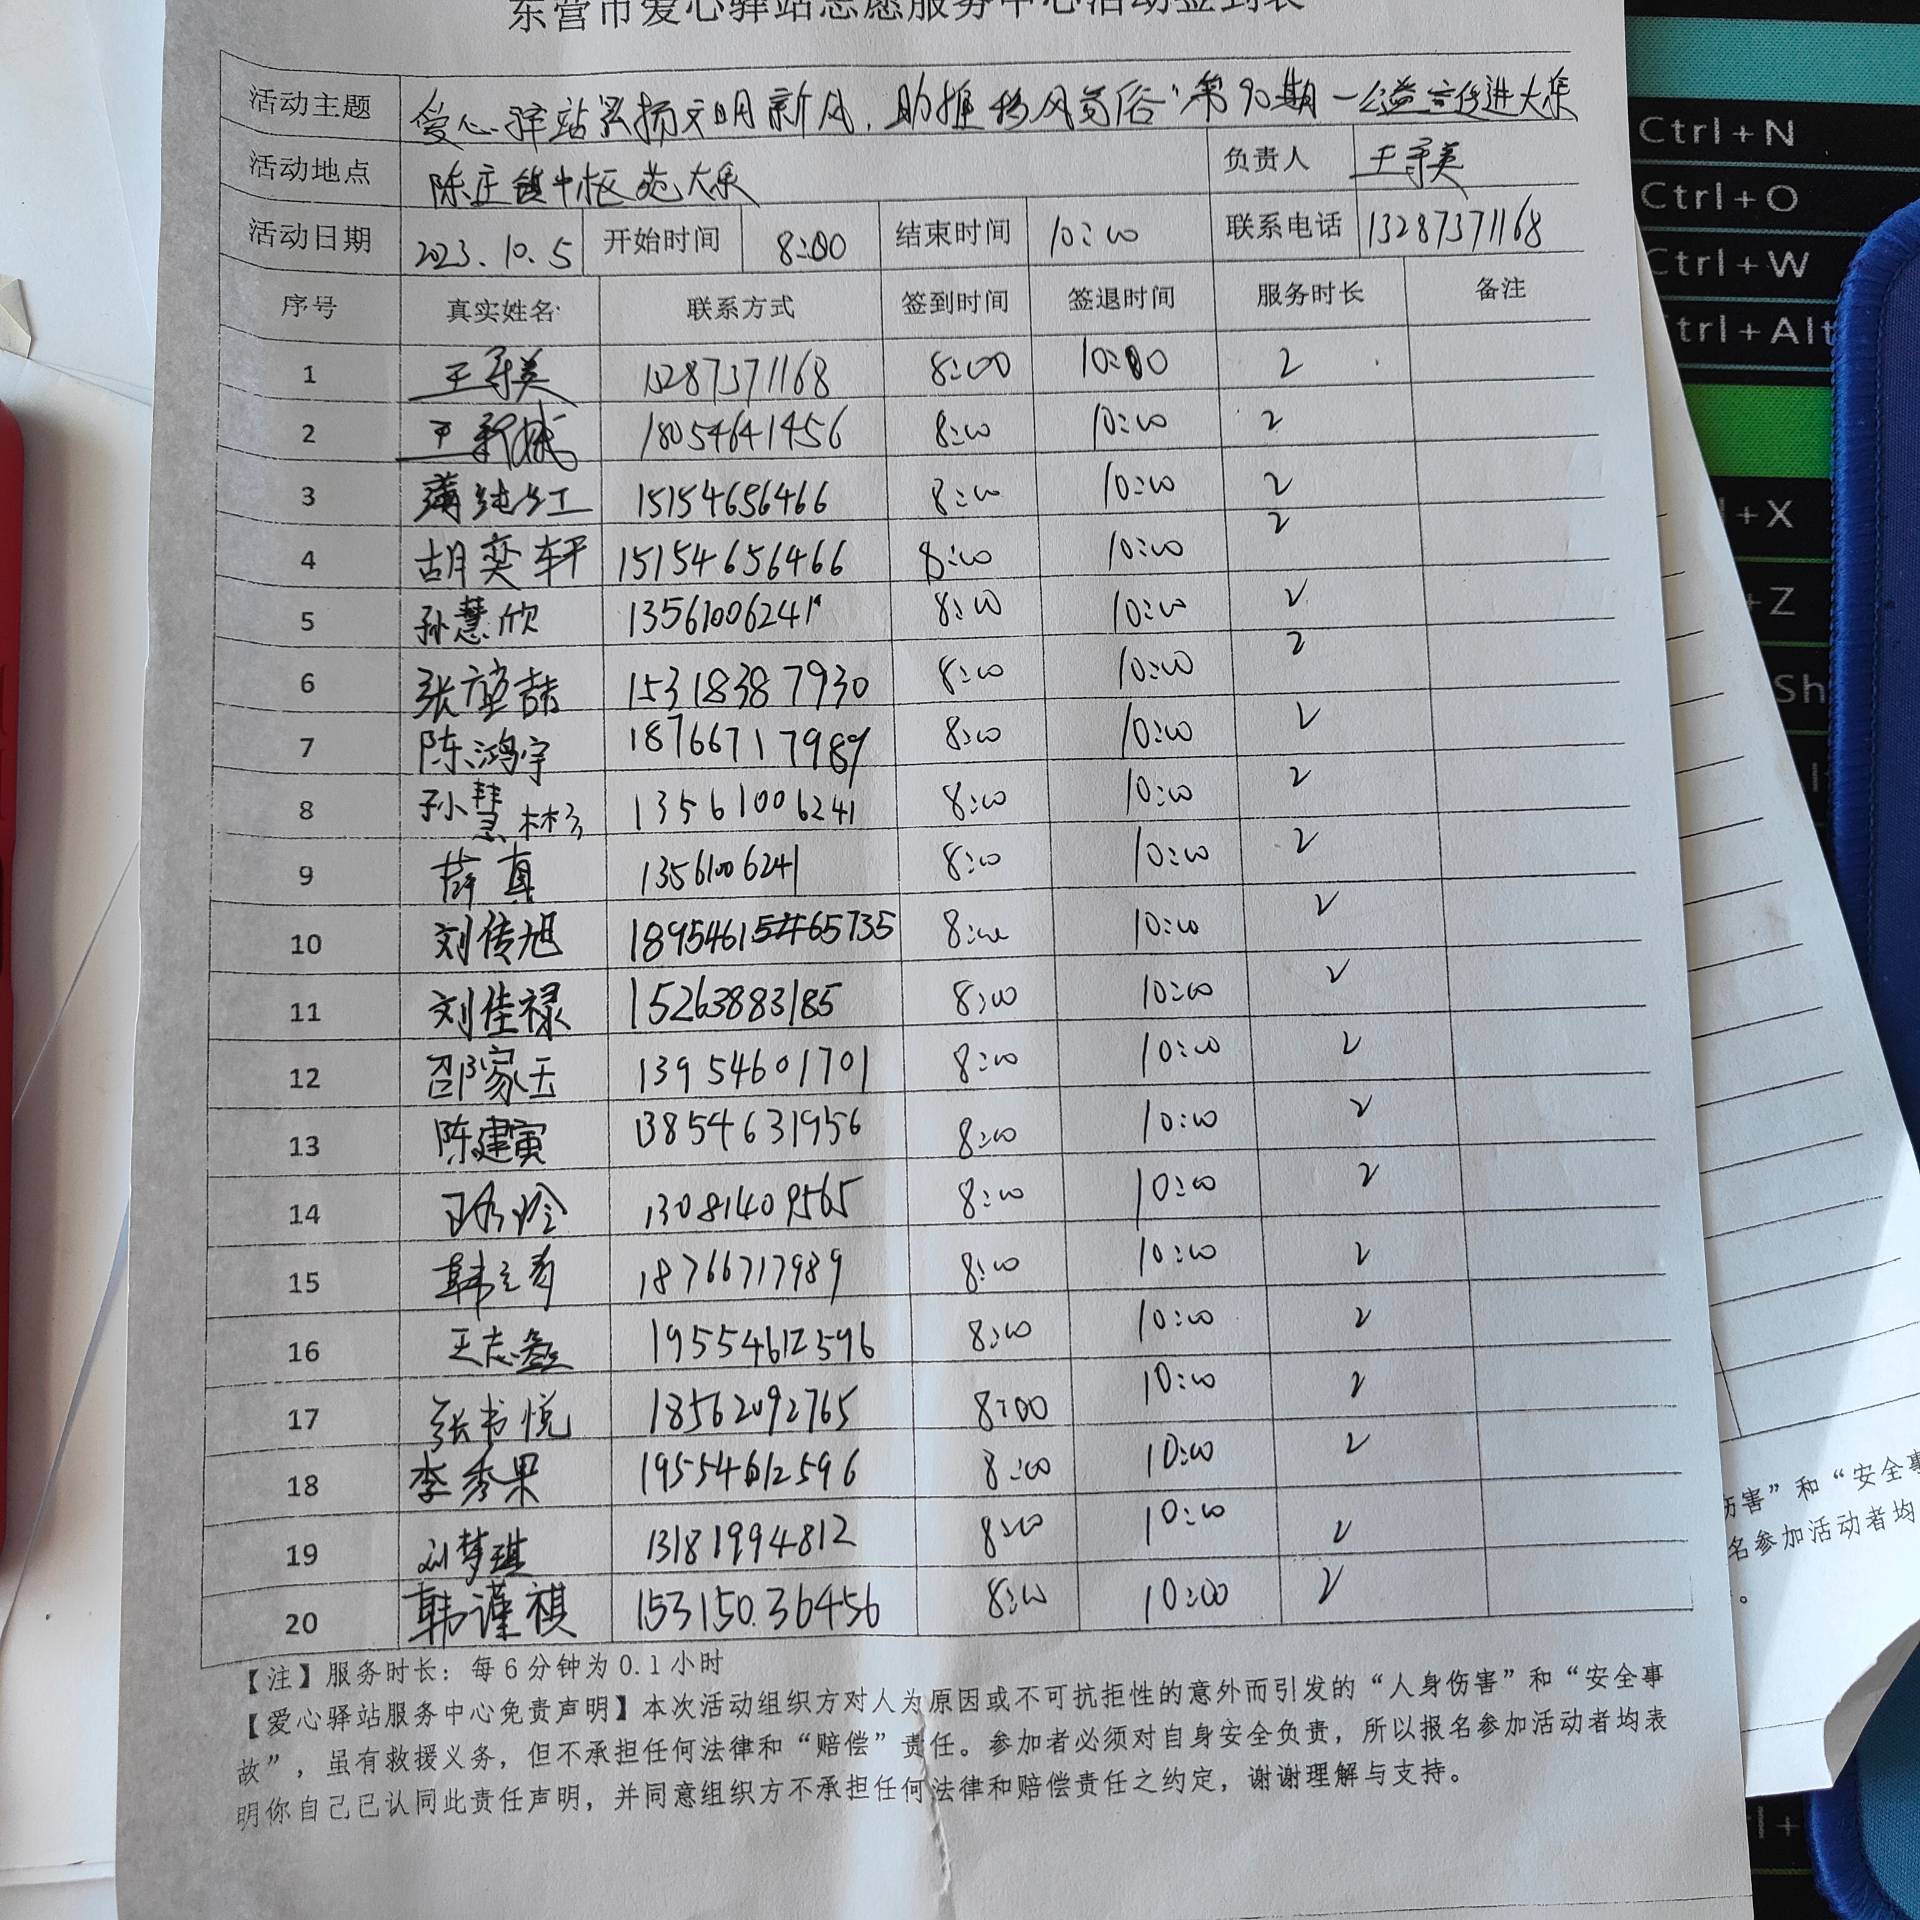 东营市爱心驿站志愿服务中心活动签到表
活动主题 爱心驿站弘扬文明新风、助推移风易俗"第90期一公益宣传进大集
活动地点 陈庄镇中枢苑大集 负责人 王寻英
活动日期 2023.10.5 开始时间 8:00 结束时间 10:00 联系电话 13287371168
序号 真实姓名 联系方式 签到时间 签退时间 服务时长 备注
1 王寻英 13287371168 8:00 10:00 2
2 18054641456 8:00 10:00 2
3 蒲纯红 15154656466 8:00 10:00 2
4 胡奕轩 15154656466 8:00 10:00 2
5 孙慧欣 13561006241 8:00 10:00 2
6 15318387930 8:00 10:00 2
7 陈鸿宇 18766717989 8:00 10:00 2
8 孙慧彬 13561006241 8:00 10:00 2
9 薛真 13561006241 8:00 10:00 2
10 刘传旭 8:00 10:00 2
11 刘佳禄 15263883185 8:00 10:00 2
12 邵家玉 13954601701 8:00 10:00 2
13 陈建寅 13854631956 8:00 10:00 2
14 13081409565 8:00 10:00 2
15 18766717989 8:00 10:00 2
16 王志鑫 19554612596 8:00 10:00 2
17 张书悦 18562092765 8:00 10:00 2
18 李秀果 19554612596 8:00 10:00 2
19 刘梦琪 13181994812 8:00 10:00 2
20 韩谨祺 15315036456 8:00 10:00 2
【注】服务时长：每6分钟为0.1小时
【爱心驿站服务中心免责声明】本次活动组织方对人为原因或不可抗拒性的意外而引发的“人身伤害”和“安全事
故”，虽有救援义务，但不承担任何法律和“赔偿”责任。参加者必须对自身安全负责，所以报名参加活动者均表
明你自己已认同此责任声明，并同意组织方不承担任何法律和赔偿责任之约定，谢谢理解与支持。
Ctrl+N
Ctrl+O
Ctrl+W
Ctrl+Alt
+X
+Z
Sh
伤害”和“安全事
名参加活动者均
。